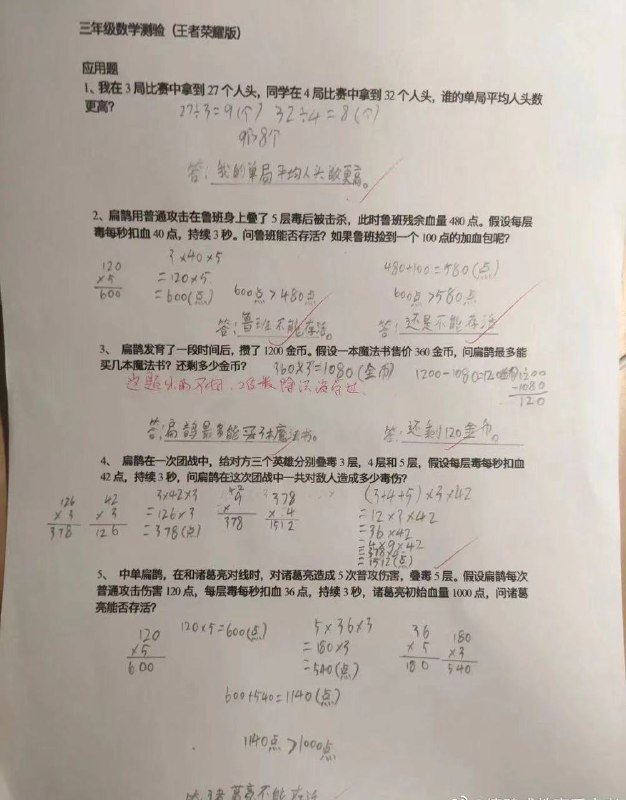 三年级数学测验（王者荣耀版）
应用题
1、我在 3 局比赛中拿到 27 个人头，同学在 4 局比赛中拿到 32 个人头，谁的单局平均人头数
更高？
27÷3=9(个) 32÷4=8(个)
9个>8个
答：我的单局平均人头数更高。
2、扁鹊用普通攻击在鲁班身上叠了 5 层毒后被击杀，此时鲁班残余血量 480 点。假设每层
毒每秒扣血 40 点，持续 3 秒。问鲁班能否存活？如果鲁班捡到一个 100 点的加血包呢？
3×40×5 480+100=580(点)
120
×5
600
=120×5
=600(点) 600点>480点 600点>580点
答：鲁班不能存活。 答：还是不能存活
3、 扁鹊发育了一段时间后，攒了 1200 金币。假设一本魔法书售价 360 金币，问扁鹊最多能
买几本魔法书？还剩多少金币？
360×3=1080(金币) 1200-1080=120
1200
-1080
120
答：扁鹊最多能买3本魔法书。 答：还剩120金币。
4、 扁鹊在一次团战中，给对方三个英雄分别叠毒 3 层，4 层和 5 层，假设每层毒每秒扣血
42 点，持续 3 秒，问扁鹊在这次团战中一共对敌人造成多少毒伤？
126
×3
378
42
×3
126
3×42×3
=126×3
=378(点)
42
×9
378
378
×4
1512
(3+4+5)×3×42
=12×3×42
=36×42
=4×9×42
=1512(点)
5、 中单扁鹊，在和诸葛亮对线时，对诸葛亮造成 5 次普攻伤害，叠毒 5 层。假设扁鹊每次
普通攻击伤害 120 点，每层毒每秒扣血 36 点，持续 3 秒，诸葛亮初始血量 1000 点，问诸葛
亮能否存活？
120
×5
600
120×5=600(点)
5×36×3
=180×3
=540(点)
36
×5
180
180
×3
540
600+540=1140(点)
1140点>1000点
答：诸葛亮不能存活